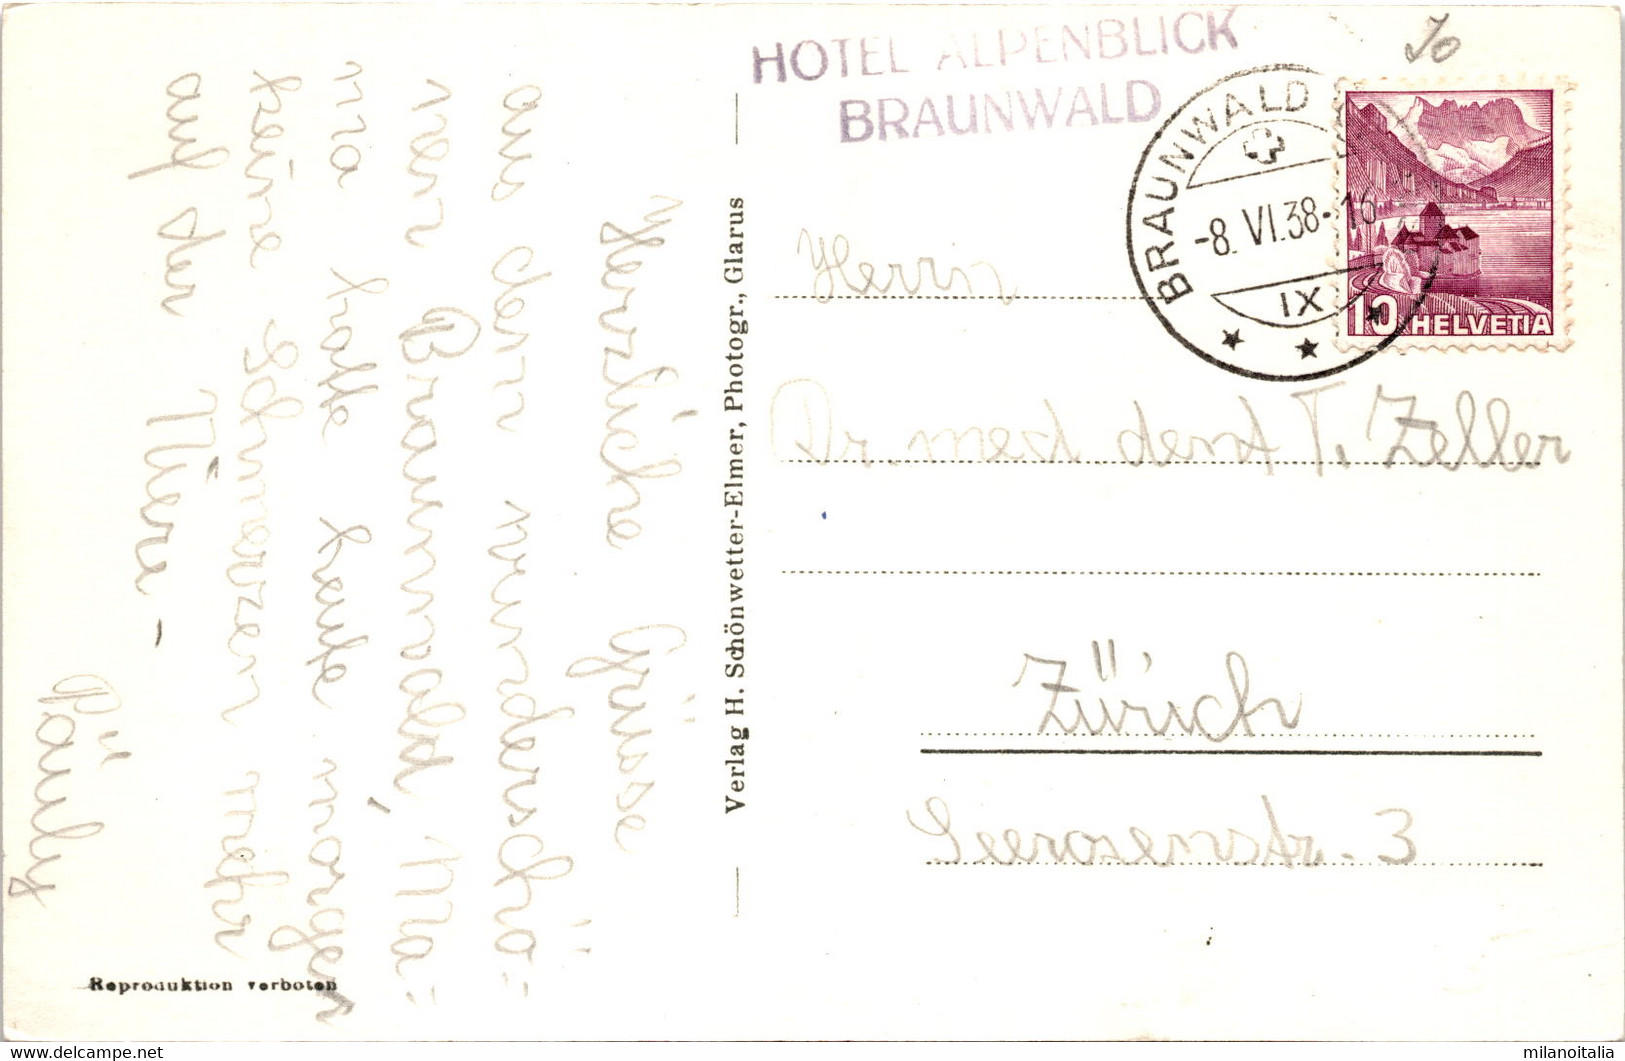 HOTEL ALPENBLICK
BRAUNWALD
BRAUNWALD
-8. VI. 38-16
IX
10 HELVETIA
Herrn
Dr. med dent T. Zeller
Zürich
Seerosenstr. 3
Herzliche Grüsse
aus dem wunderschö=
nen Braunwald, Ma=
ma hatte heute morgen
keine Schmerzen mehr
auf der Niere -
Päuly
Verlag H. Schönwetter-Elmer, Photogr., Glarus
Reproduktion verboten
milanoitalia